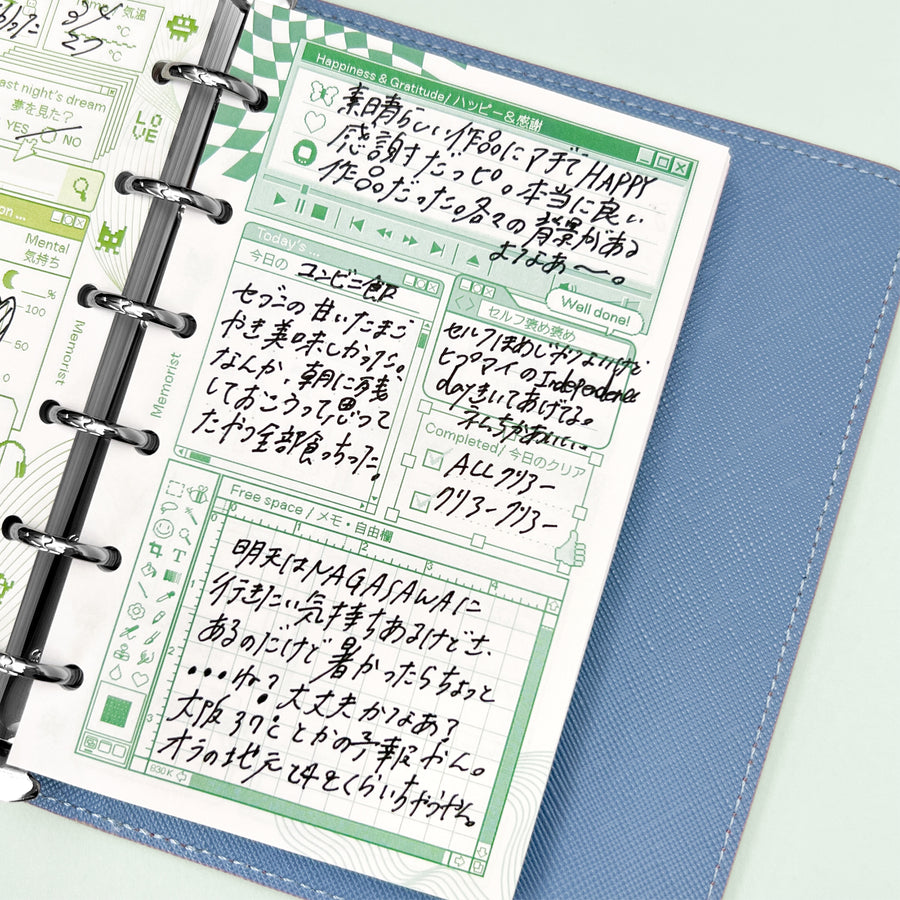 気温
24
27
℃
℃
ast night's dream
夢を見た？
YES
NO
LOVE
Mental
気持ち
%
100
50
0
Memorist
Memorist
Happiness & Gratitude/ ハッピー&感謝
素晴らしい作品にマヂでHAPPY
感謝すだっピ。本当に良い
作品だった。各々の背景がある
よなぁ〜。
Today's ...
今日の コンビニ飯
セブンの甘いたまご
やき美味しかった。
なんか、朝に残
しておこうって思って
たやつ全部食っちった。
Well done!
セルフ褒め褒め
セルフほめじゃないけど
ヒプマイのIndependence
day きいてあげてる。
Completed/ 今日のクリア
ALLクリアー
クリアークリアー
Free space / メモ・自由欄
0
1
2
3
4
0
1
2
3
明天はNAGASAWAに
行きたい気持ちあるけどさ、
あるのだけど暑かったらちょっと
・・・ね？・大丈夫かなあ？
大阪37℃とかの予報やん。
オラの地元24℃くらいちゃうやん。
830K